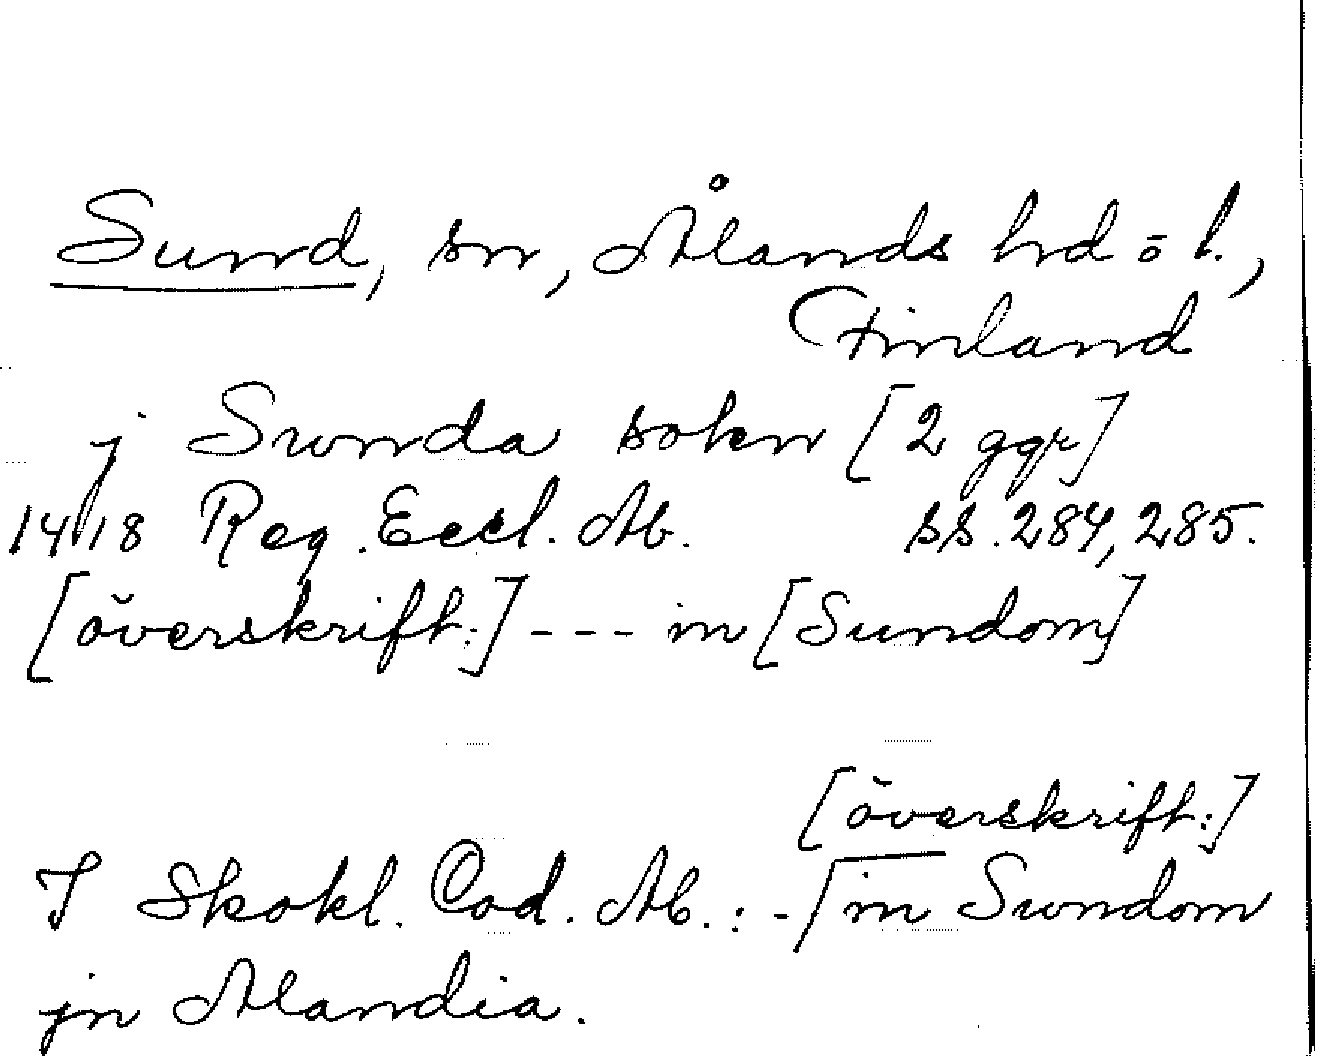 Sund, sn, Ålands hd o l.,
Finland
j Sunda sokn [2 ggr]
1418 Reg. Eccl. Ab. ss. 284, 285.
[överskrift:] --- in [Sundom]
[överskrift:]
I Skokl. Cod. Ab.: - in Sundom
jn Alandia.